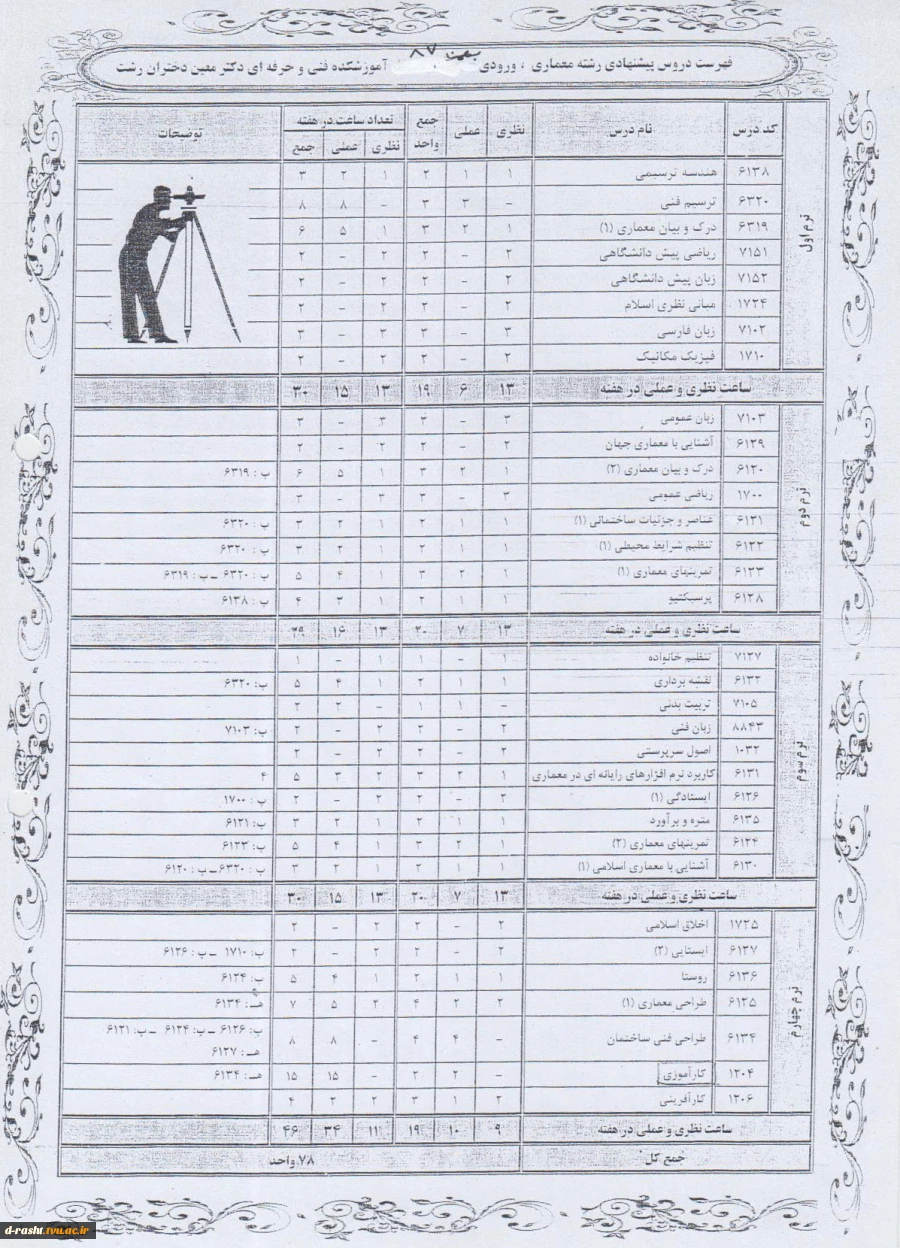 فهرست دروس پیشنهادی رشته معماری ، ورودی بهمن ۸۷ آموزشکده فنی و حرفه ای دکتر معین دختران رشت
کد درس نام درس نظری عملی جمع واحد تعداد ساعت در هفته توضیحات
نظری عملی جمع
ترم اول
۶۱۳۸ هندسه ترسیمی ۱ ۱ ۲ ۱ ۲ ۳
۶۳۲۰ ترسیم فنی - ۳ ۳ - ۸ ۸
۶۳۱۹ درک و بیان معماری (۱) ۱ ۲ ۳ ۱ ۵ ۶
۷۱۵۱ ریاضی پیش دانشگاهی ۲ - ۲ ۲ - ۲
۷۱۵۲ زبان پیش دانشگاهی ۲ - ۲ ۲ - ۲
۱۷۲۴ مبانی نظری اسلام ۲ - ۲ ۲ - ۲
۷۱۰۲ زبان فارسی ۳ - ۳ ۳ - ۳
۱۷۱۰ فیزیک مکانیک ۲ - ۲ ۲ - ۲
ساعت نظری و عملی در هفته ۱۳ ۶ ۱۹ ۱۳ ۱۵ ۳۰
ترم دوم
۷۱۰۳ زبان عمومی ۳ - ۳ ۳ - ۳
۶۱۲۹ آشنایی با معماری جهان ۲ - ۲ ۲ - ۲
۶۱۲۰ درک و بیان معماری (۲) ۱ ۲ ۳ ۱ ۵ ۶ پ : ۶۳۱۹
۱۷۰۰ ریاضی عمومی ۳ - ۳ ۳ - ۳
۶۱۲۱ عناصر و جزئیات ساختمانی (۱) ۱ ۱ ۲ ۱ ۲ ۳ پ : ۶۳۲۰
۶۱۲۲ تنظیم شرایط محیطی (۱) ۱ ۱ ۲ ۱ ۲ ۳ پ : ۶۳۲۰
۶۱۲۳ تمرینهای معماری (۱) ۱ ۲ ۳ ۱ ۴ ۵ پ : ۶۳۲۰ - پ : ۶۳۱۹
۶۱۲۸ پرسپکتیو ۱ ۱ ۲ ۱ ۳ ۴ پ : ۶۱۳۸
ساعت نظری و عملی در هفته ۱۳ ۷ ۲۰ ۱۳ ۱۶ ۲۹
ترم سوم
۷۱۲۷ تنظیم خانواده ۱ - ۱ ۱ - ۱
۶۱۳۲ نقشه برداری ۱ ۱ ۲ ۱ ۴ ۵ پ: ۶۳۲۰
۷۱۰۵ تربیت بدنی - ۱ ۱ - ۲ ۲
۸۸۴۳ زبان فنی ۲ - ۲ ۲ - ۲ پ: ۷۱۰۳
۱۰۳۲ اصول سرپرستی ۲ - ۲ ۲ - ۲
۶۱۳۱ کاربرد نرم افزارهای رایانه ای در معماری ۱ ۲ ۳ ۲ ۳ ۵ ۴
۶۱۲۶ ایستادگی (۱) ۲ - ۲ ۲ - ۲ پ : ۱۷۰۰
۶۱۳۵ متره و برآورد ۱ ۱ ۲ ۱ ۲ ۳ پ: ۶۱۲۱
۶۱۲۴ تمرینهای معماری (۲) ۱ ۲ ۳ ۱ ۴ ۵ پ: ۶۱۲۳
۶۱۳۰ آشنایی با معماری اسلامی (۱) ۱ ۱ ۲ ۱ ۲ ۳ پ : ۶۳۲۰ - پ : ۶۱۲۰
ساعت نظری و عملی در هفته ۱۳ ۷ ۲۰ ۱۳ ۱۵ ۳۰
ترم چهارم
۱۷۲۵ اخلاق اسلامی ۲ - ۲ ۲ - ۲
۶۱۲۷ ایستایی (۲) ۲ - ۲ ۲ - ۲ پ: ۱۷۱۰ - پ : ۶۱۲۶
۶۱۳۶ روستا ۱ ۱ ۲ ۱ ۴ ۵ پ: ۶۱۲۴
۶۱۲۵ طراحی معماری (۱) ۲ ۲ ۴ ۲ ۵ ۷ هـ : ۶۱۳۴
۶۱۳۴ طراحی فنی ساختمان - ۴ ۴ - ۸ ۸ پ: ۶۱۲۶ - پ: ۶۱۲۴ - پ: ۶۱۲۱
هـ : ۶۱۲۷
۱۲۰۴ کارآموزی - ۲ ۲ - ۱۵ ۱۵ هـ : ۶۱۳۴
۱۲۰۶ کارآفرینی ۲ ۱ ۳ ۲ ۲ ۴
ساعت نظری و عملی در هفته ۹ ۱۰ ۱۹ ۱۱ ۳۴ ۴۶
جمع کل ۷۸ واحد
d-rasht.tvu.ac.ir